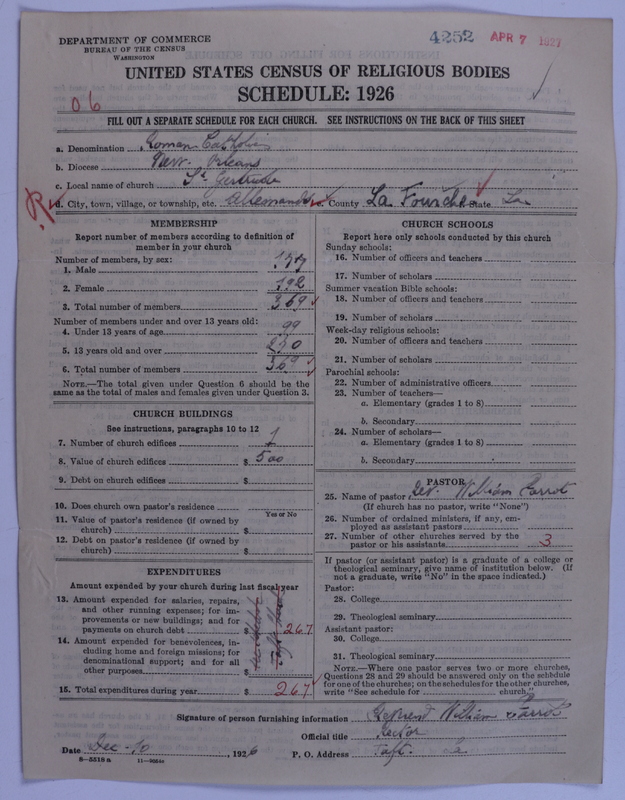 4252 APR 7 1927
DEPARTMENT OF COMMERCE
BUREAU OF THE CENSUS
WASHINGTON
UNITED STATES CENSUS OF RELIGIOUS BODIES
SCHEDULE: 1926
06
FILL OUT A SEPARATE SCHEDULE FOR EACH CHURCH. SEE INSTRUCTIONS ON THE BACK OF THIS SHEET
a. Denomination Roman Catholic
b. Diocese New Orleans
c. Local name of church St Gertrude
R
d. City, town, village, or township, etc. Allemands County La Fourche State La
MEMBERSHIP
Report number of members according to definition of
member in your church
Number of members, by sex:
1. Male 177
2. Female 192
3. Total number of members 369
Number of members under and over 13 years old:
4. Under 13 years of age 99
5. 13 years old and over 270
6. Total number of members 369
NOTE.—The total given under Question 6 should be the
same as the total of males and females given under Question 3.
CHURCH BUILDINGS
See instructions, paragraphs 10 to 12
7. Number of church edifices 1
8. Value of church edifices $ 500
9. Debt on church edifices $
10. Does church own pastor's residence
Yes or No
11. Value of pastor's residence (if owned by
church) $
12. Debt on pastor's residence (if owned by
church) $
EXPENDITURES
Amount expended by your church during last fiscal year
13. Amount expended for salaries, repairs,
and other running expenses; for im-
provements or new buildings; and for
payments on church debt $ 267
14. Amount expended for benevolences, in-
cluding home and foreign missions; for
denominational support; and for all
other purposes $
15. Total expenditures during year $ 267
CHURCH SCHOOLS
Report here only schools conducted by this church
Sunday schools:
16. Number of officers and teachers
17. Number of scholars
Summer vacation Bible schools:
18. Number of officers and teachers
19. Number of scholars
Week-day religious schools:
20. Number of officers and teachers
21. Number of scholars
Parochial schools:
22. Number of administrative officers
23. Number of teachers—
a. Elementary (grades 1 to 8)
b. Secondary
24. Number of scholars—
a. Elementary (grades 1 to 8)
b. Secondary
PASTOR
25. Name of pastor Rev. William Carrot
(If church has no pastor, write "None")
26. Number of ordained ministers, if any, em-
ployed as assistant pastors
27. Number of other churches served by the
pastor or his assistants 3
If pastor (or assistant pastor) is a graduate of a college or
theological seminary, give name of institution below. (If
not a graduate, write "No" in the space indicated.)
Pastor:
28. College
29. Theological seminary
Assistant pastor:
30. College
31. Theological seminary
NOTE.—Where one pastor serves two or more churches,
Questions 28 and 29 should be answered only on the schedule
for one of the churches; on the schedules for the other churches,
write "See schedule for church."
Signature of person furnishing information William Carrot
Official title Rector
Date Dec-10, 1926 P. O. Address Taft. La
8—5518 a